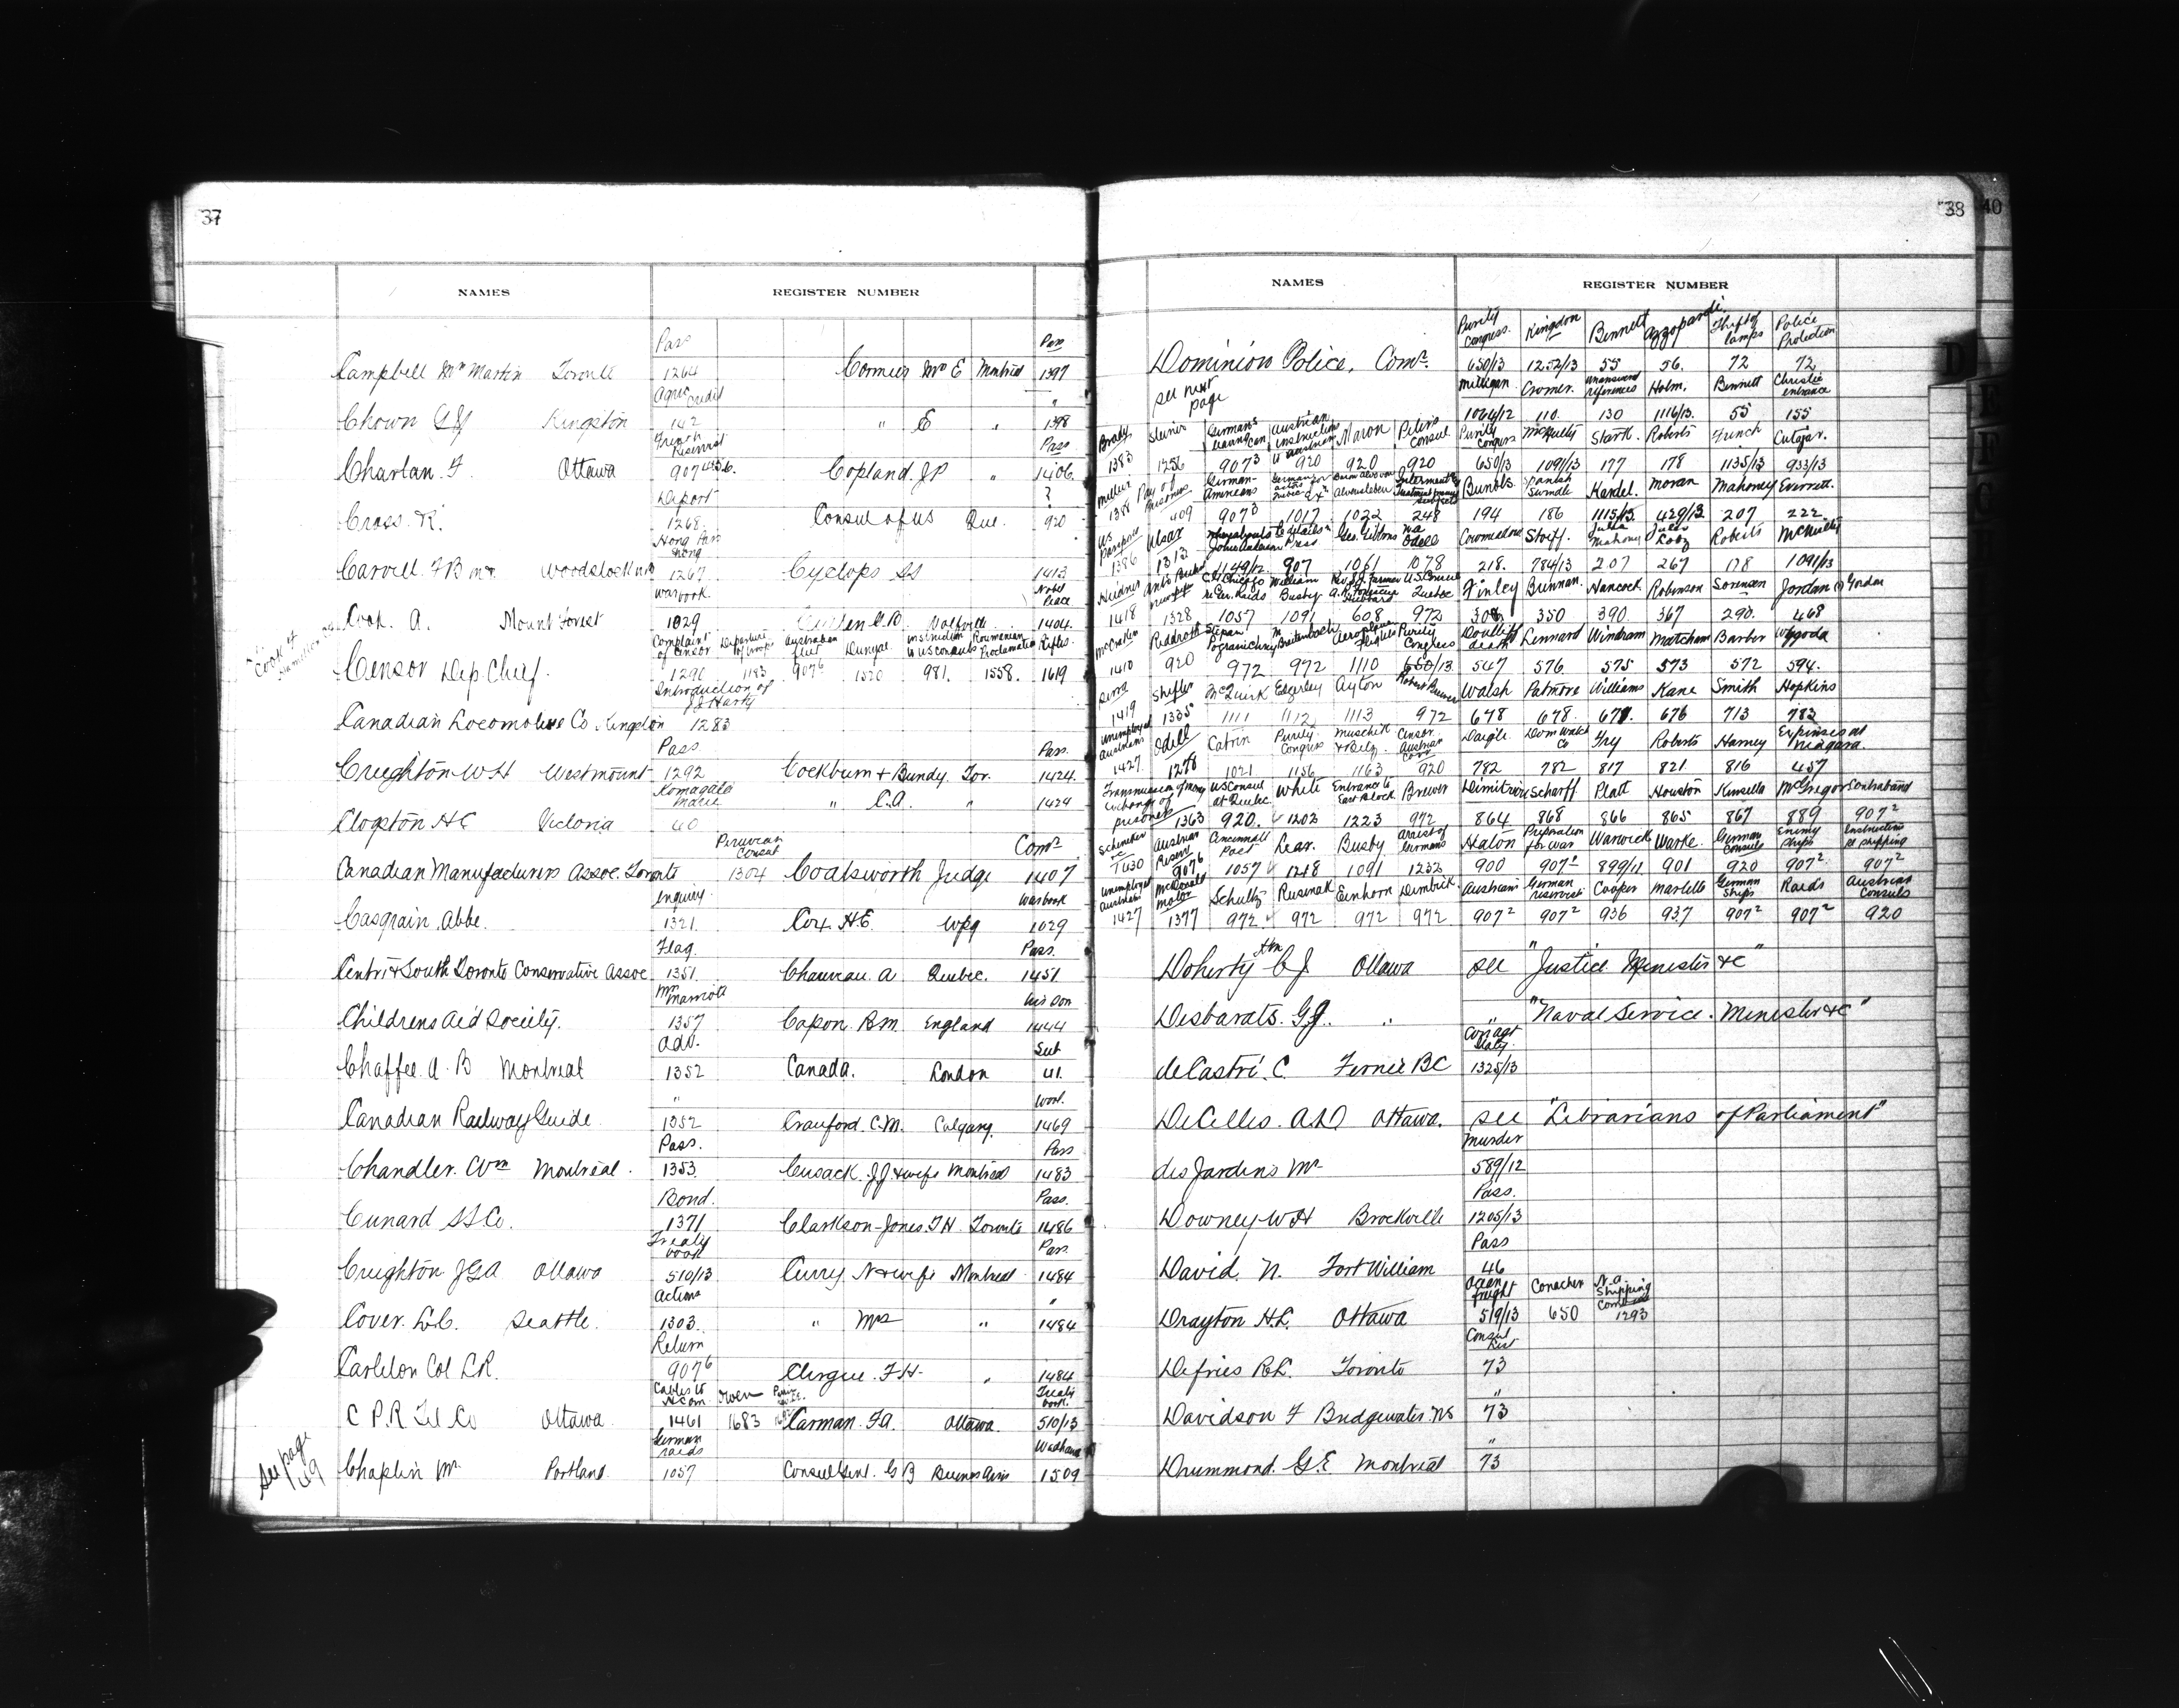 37
NAMES REGISTER NUMBER
Pass Pass
Campbell Mrs Martin Toronto 1264 Cormier Mr E Montreal 1397
Agric Credit "
Chown Kingston 142 " E " 1398
French Reservist Pass
Charlan F Ottawa 907 Copland JP " 1406
Deport ?
Cross R. 1268 Consul of US Que. 920
Hong Kong Pass
Carvell FB Woodstock NB 1267 Cyclops SS 1413
War book Nobel Peace
Cook A. Mount Forest 1029 C.A. 1404
Cook H Hamilton
Complaint of Censor Departure of troops Australian fleet Instruction to US Consuls Roumanian Proclamation Rifles
Censor Dep Chief. 1290 1183 907⁶ 1520 981. 1558. 1619
Introduction of JJ Harty
Canadian Locomotive Co Kingston 1283
Pass Pass
Creighton WH Westmount 1292 Cockburn & Bundy Tor. 1424
Komagata Maru
" C.A. " 1424
Clogston HC Victoria 40
Peruvian Consul Comr
Canadian Manufacturers Assoc. Toronto 1304 Coatsworth Judge 1407
Enquiry Warbook
Casgrain Abbe. 1321. Cox H.E. Wpg 1029
Flag Pass.
Centre & South Toronto Conservative Assoc 1351. Chauveau A Quebec. 1451
Mrs Marriott
Childrens Aid Society. 1357 Capon R.M. England 1444
Adv. Sub
Chaffee A. B Montreal 1352 Canada. London 41.
" Wool.
Canadian Railway Guide 1352 Crauford C.M. Calgary. 1469
Pass. Pass
Chandler. Wm Montreal. 1353 Cusack. J.J. & wife Montreal 1483
Bond. Pass.
Cunard SS Co. 1371 Clarkson-Jones. T H. Toronto 1486
Treaty book Pass.
Creighton JGA Ottawa 510/13 Curry N & wife Montreal 1484
Actions "
Cover. L.C. Seattle. 1303. " Mrs " 1484
Return
Carleton Col LR. 907⁶ Clergue. F H. " 1484
Cables to Owen Treaty book.
C P.R Tel Co Ottawa 1461 1683 Carman. F.A. Ottawa. 510/13
German raids
Chaplin Mr Portland 1057 Consul Genl. G B Buenos Aires 1509
See page 49
38
40
NAMES REGISTER NUMBER
Purity Congress. Kingdon Bennett Azzopardi Theft of lamps Police Protection
Dominion Police, Comr. 650/13 1252/13 55 56. 72 72
see next page
Milligan Cromer. Unanswered references Holm. Bennett Christie entrance
1064/12 110. 130 1116/13. 55 155
Brady Steiner Germans leaving Can Austrian instructions Maron Peters Consul Purity Congress McNulty Stark. Roberts Funch Cutajar.
1383 1256 907³ 920 920 920 650/13 1091/13 177 178 1135/13 933/13
Miller Pay of Prisoners German-Americans Alvensleben Bunols Spanish Swindle Kardel. Moran Mahoney Everrett.
1388 409 907³ 1017 1022 248 194 186 1115/13 429/13 207 222
US Passports Ulsar Whereabouts John Anderson Press Geo. Gibbons Odell Storff. Julia Mahoney Roberts McNulty
1386 1313 1149/12 907 1061 1078 218. 784/13 207 267 178 1091/13
William Busby US Consul Quebec Finley Brennan Hancock Robinson Sorensen Jordan (?) Gordon
1418 1328 1057 1091 608 972 308 350 390. 367 290. 468
Breitenbach Aeroplane flights Purity Congress death Lennard Windram Matcham Barber Wygoda
1410 920 972 972 1110 650/13 547 576. 575 573 572 594.
Shifler McQuirk Edgerley Ayton Walsh Patmore Williams Kane Smith Hopkins
1419 1335 1111 1112 1113 972 678 678. 679. 676 713 783
Unemployed Austrians Odell Catrin Purity Congress Censor Austrian Corr Daigle Dom Watch Co Fry Roberts Harney Expenses at Niagara.
1427 1278 1021 1156 1163 920 782 782 817 821 816 457
Transmission of money exchange of prisoners US Consul at Quebec White Entrance to East Block Brewer Scharff. Platt Houston Kinsella McGregor Contraband
1363 920. 1202 1223 972 864 868 866 865 867 889 907²
Austrian Reserv Cincinnati Post Lear. Busby Arrest of Germans Halon Preparation for War Warwick Warke. German Consuls Enemy Ships Instructions re shipping
1630 907⁶ 1057 1218 1091 1232 900 907¹ 899/11 901 920 907² 907²
Unemployed Austrians McDonald motor Schultz Rusinak Einhorn Dumbrick Austrians German reservist Cooper Martello German Ships Raids Austrian Consuls
1427 1377 972 972 972 972 907² 907² 936 937 907² 907² 920
Doherty Hon C J Ottawa see "Justice Minister &c"
Desbarats. G.J. " " "Naval Service. Minister &c"
deCastri. C Fernie BC 1325/13
DeCelles. A.D Ottawa. see "Librarians of Parliament"
Murder
desJardins Mr 589/12
Pass.
Downey WH Brockville 1205/13
Pass
David. N. Fort William 46
Ocean freight Conacher N.A. Shipping Combine
Drayton H.L. Ottawa 519/13 650 1293
Consul List
Defries R.L. Toronto 73
"
Davidson F Bridgewater. NS 73
"
Drummond. G.E Montreal 73
D
E
F
G